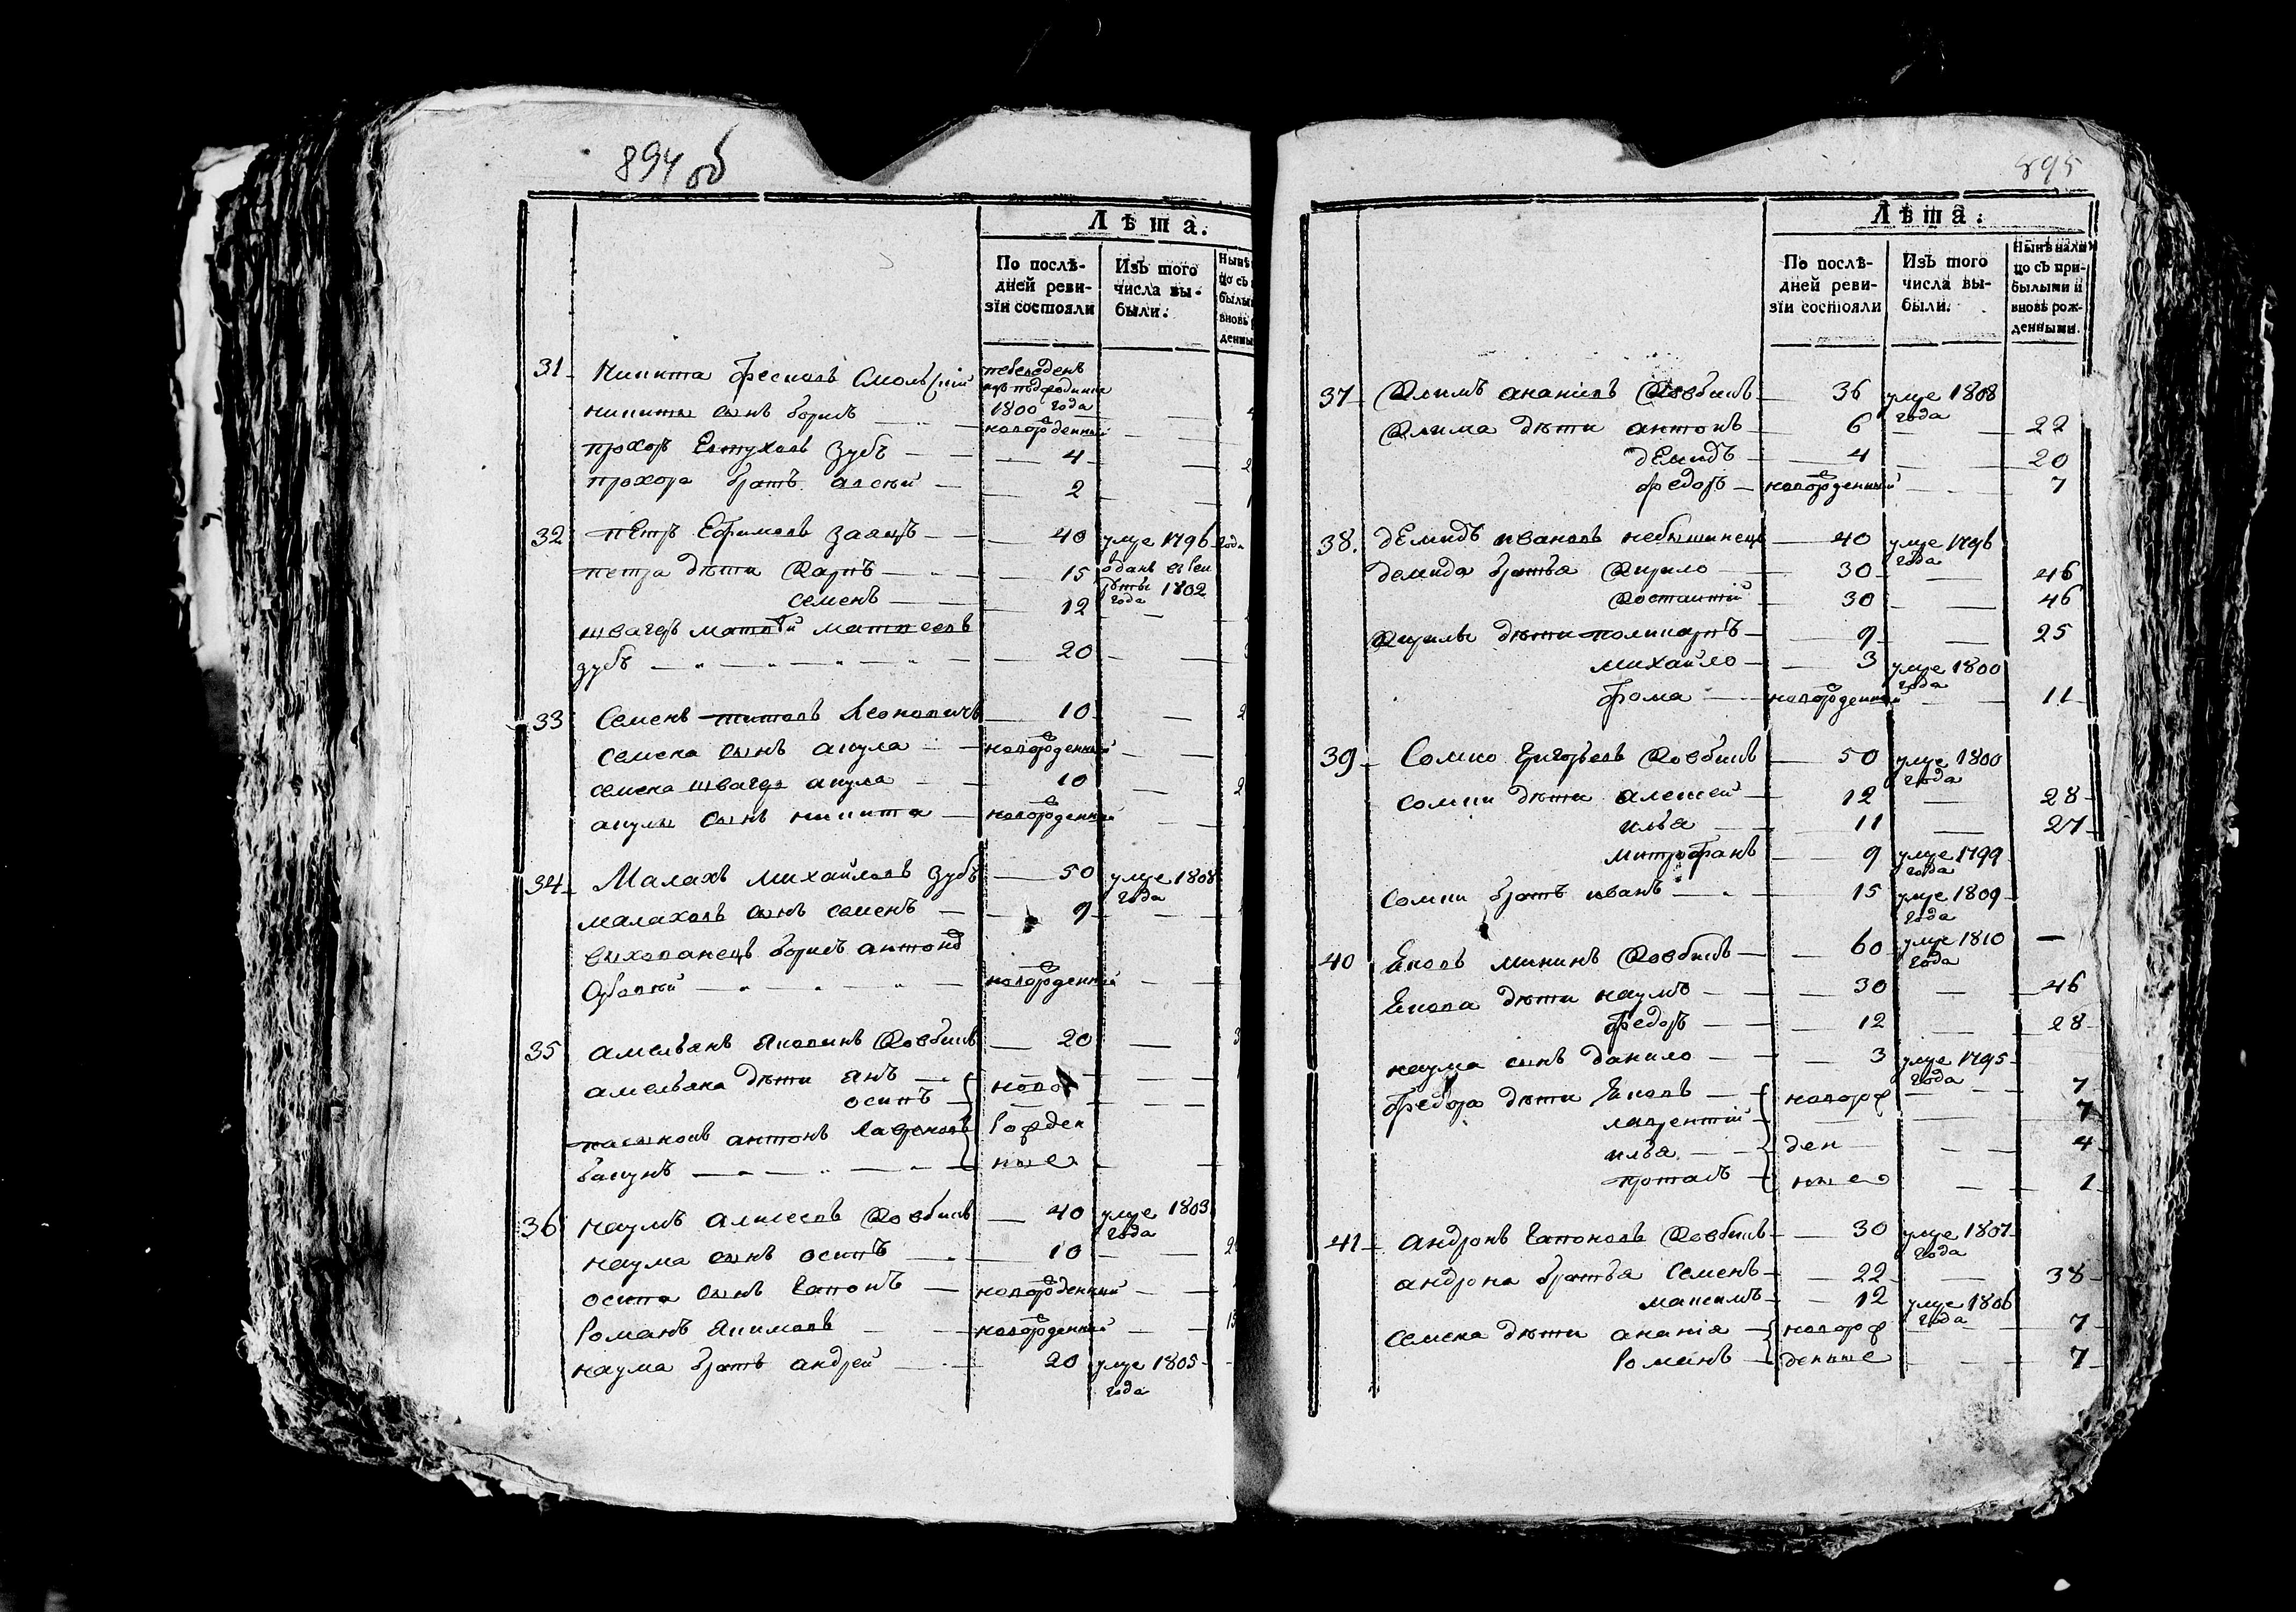 894 об
Лѣта.
По послѣ-
дней реви-
зіи состояли
Изъ того
числа вы-
были.
31 Никита Фесковъ
переведенъ
1800 года
никиты сынъ борисъ новорожденный
прохоръ Евтуховъ Зубъ 4
прохора братъ алексей 2
32 петръ Ефимовъ заяцъ 40 умре 1796 года
петра дѣти Карпъ 15 отданъ въ рек
руты 1802
года
семенъ 12
швагеръ матвѣй матвеевъ
зубъ 20
33 Семенъ титовъ Леоновичъ 10
семена сынъ акула новорожденный
семена швагеръ акула 10
акулы сынъ никита новорожденный
34 Малахъ михайловъ зубъ 50 умре 1808
года
малаховъ сынъ семенъ 9
выхованецъ борисъ антоновъ
новорожденный
35 амельянъ Яковинъ Ковбыкъ 20
амельяна дѣти янъ ново
осипъ
пасынокъ антонъ Лавреновъ рожден
ные
36 наумъ алисеевъ Ковбыкъ 40 умре 1803
года
наума сынъ осипъ 10
осипа сынъ Гапонъ новорожденный
Романъ Якимовъ новорожденный
наума братъ андрей 20 умре 1805
года
895
Лѣта:
По послѣ-
дней реви-
зіи состояли
Изъ того
числа вы-
были.
Нынѣ нали
цо съ при-
былыми и
вновь рож-
денными.
37 Климъ ананіевъ Ковбыкъ 36 умре 1808
года
Клима дѣти антонъ 6 22
демидъ 4 20
федоръ новорожденный 7
38. демидъ ивановъ небышинецъ 40 умре 1796
года
демида братья Кирило 30 46
Костантій 30 46
Кирилы дѣти поликарпъ 9 25
михайло 3 умре 1800
года
фома новорожденный 11
39 Сомко Григорьевъ Ковбыкъ 50 умре 1800
года
сомки дѣти алексей 12 28
илья 11 27
митрофанъ 9 умре 1799
года
Сомки братъ иванъ 15 умре 1809
года
40 Яковъ мининъ Ковбыкъ 60 умре 1810
года
Якова дѣти наумъ 30 46
федоръ 12 28
наума сынъ данило 3 умре 1795
года
федора дѣти Яковъ новорож 7
лаврентій 7
илья ден 4
проташъ ные 1
41 андронъ Гапоновъ Ковбыкъ 30 умре 1807
года
андрона братья семенъ 22 38
максимъ 12 умре 1806
года
семена дѣти ананія новорож 7
Романъ денные 7